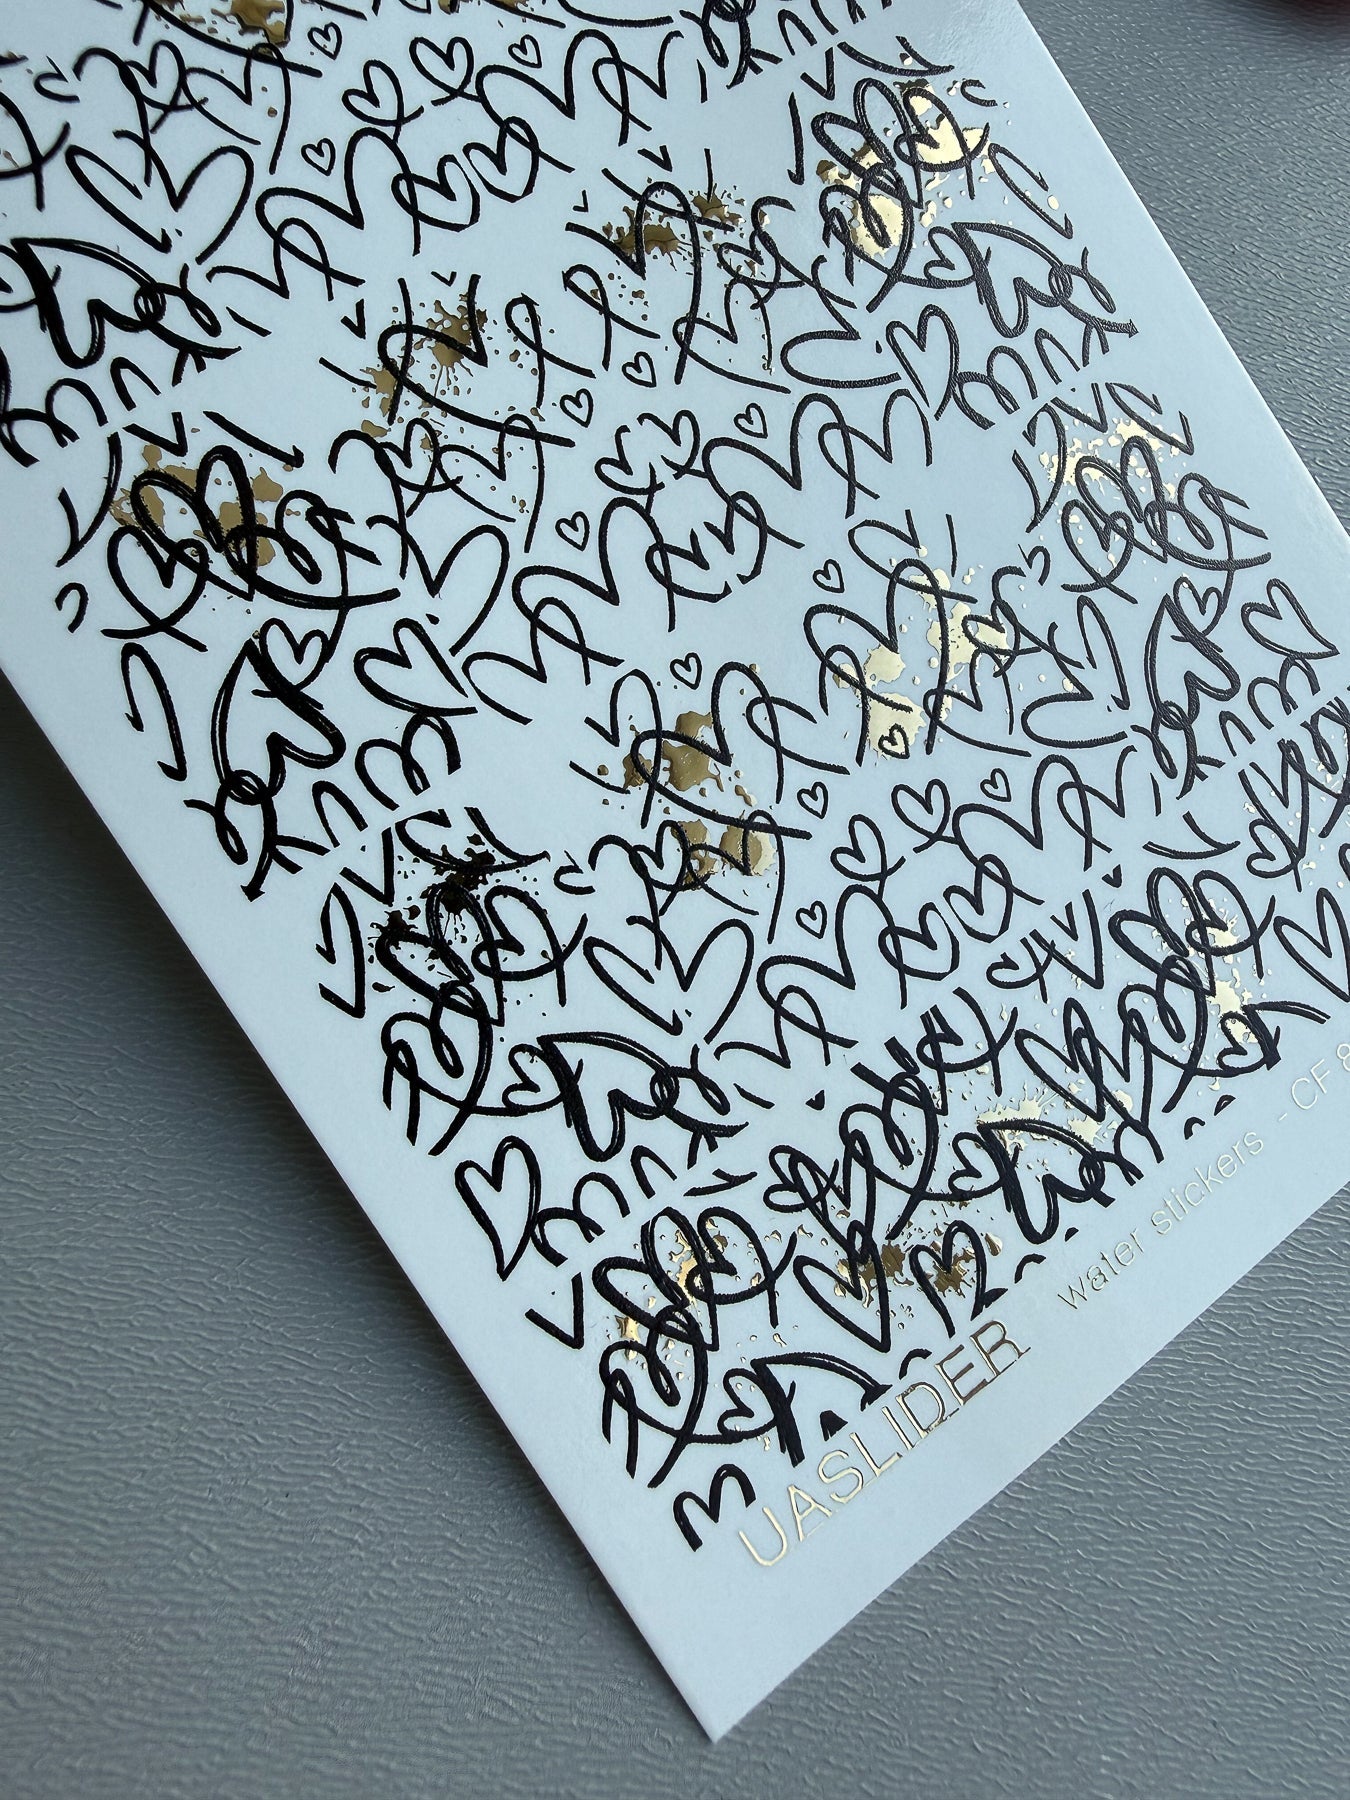 UASLIDER
water stickers - CF 8